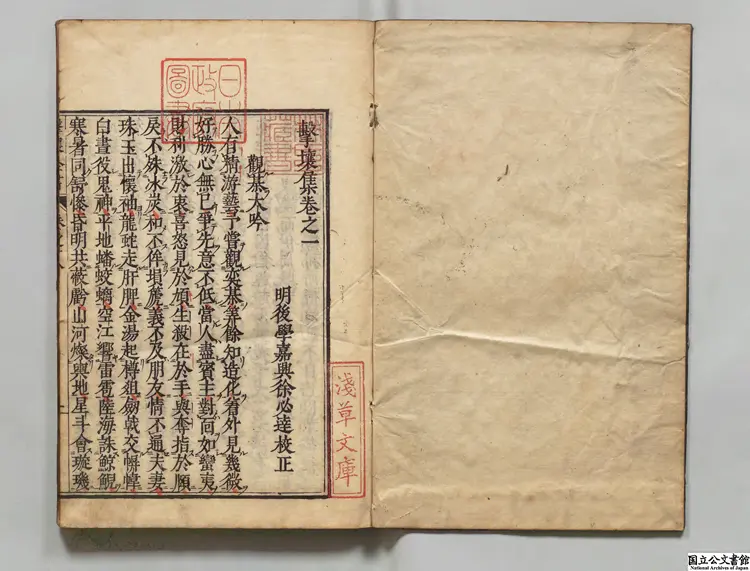 擊壤集卷之一
明後學嘉興徐必達校正
觀棊大吟
人有精游藝予嘗觀奕棊筭餘知造化着外見幾微
好勝心無已爭先意不低當人盡賓主對面如蠻夷
財利激於衷喜怒見於頄生殺在於手與奪指於頤
戾不殊冰炭和不侔塤篪義不及朋友情不通夫妻
珠玉出懷袖龍蛇走肝脾金湯起樽俎劍戟交幈幃
白晝役鬼神平地蟠蛟螭空江響雷雹陸海誅鯨鯢
寒暑同舒慘昏明共蔽虧山河燦輿地星斗會璇璣
日本
政府
圖書
淺草文庫
国立公文書館
National Archives of Japan